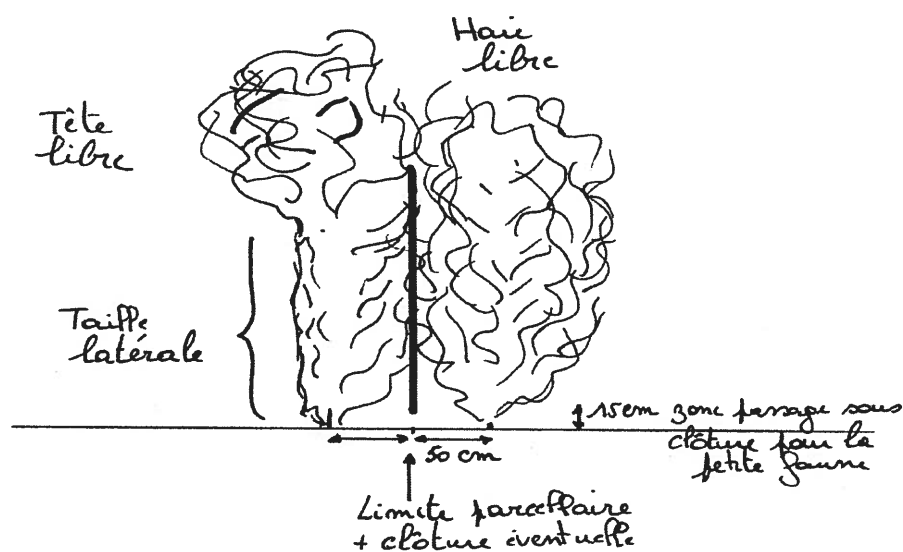 Haie
libre
Tête
libre
Taille
latérale
15cm zone passage sous
clôture pour la
petite faune
50 cm
Limite parcellaire
+ clôture éventuelle